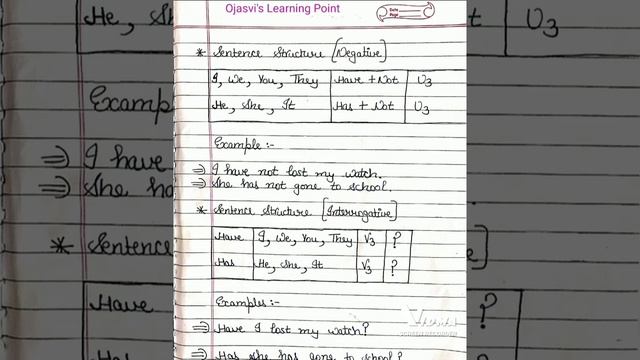 Ojasvi's Learning Point
Date
Page
* Sentence Structure [Negative]
I, We, You, They Have + Not V3
He, She, It Has + Not V3
Example :-
⇒ I have not lost my watch.
⇒ She has not gone to school.
* Sentence Structure [Interrogative]
Have I, We, You, They V3 ?
Has He, She, It V3 ?
Examples :-
⇒ Have I lost my watch?
⇒ Has she has gone to school?
VIDMA
SCREEN RECORDER
He, S
V3
Exampl
⇒ I have
⇒ She ha
* Sentence
Have
Have
?